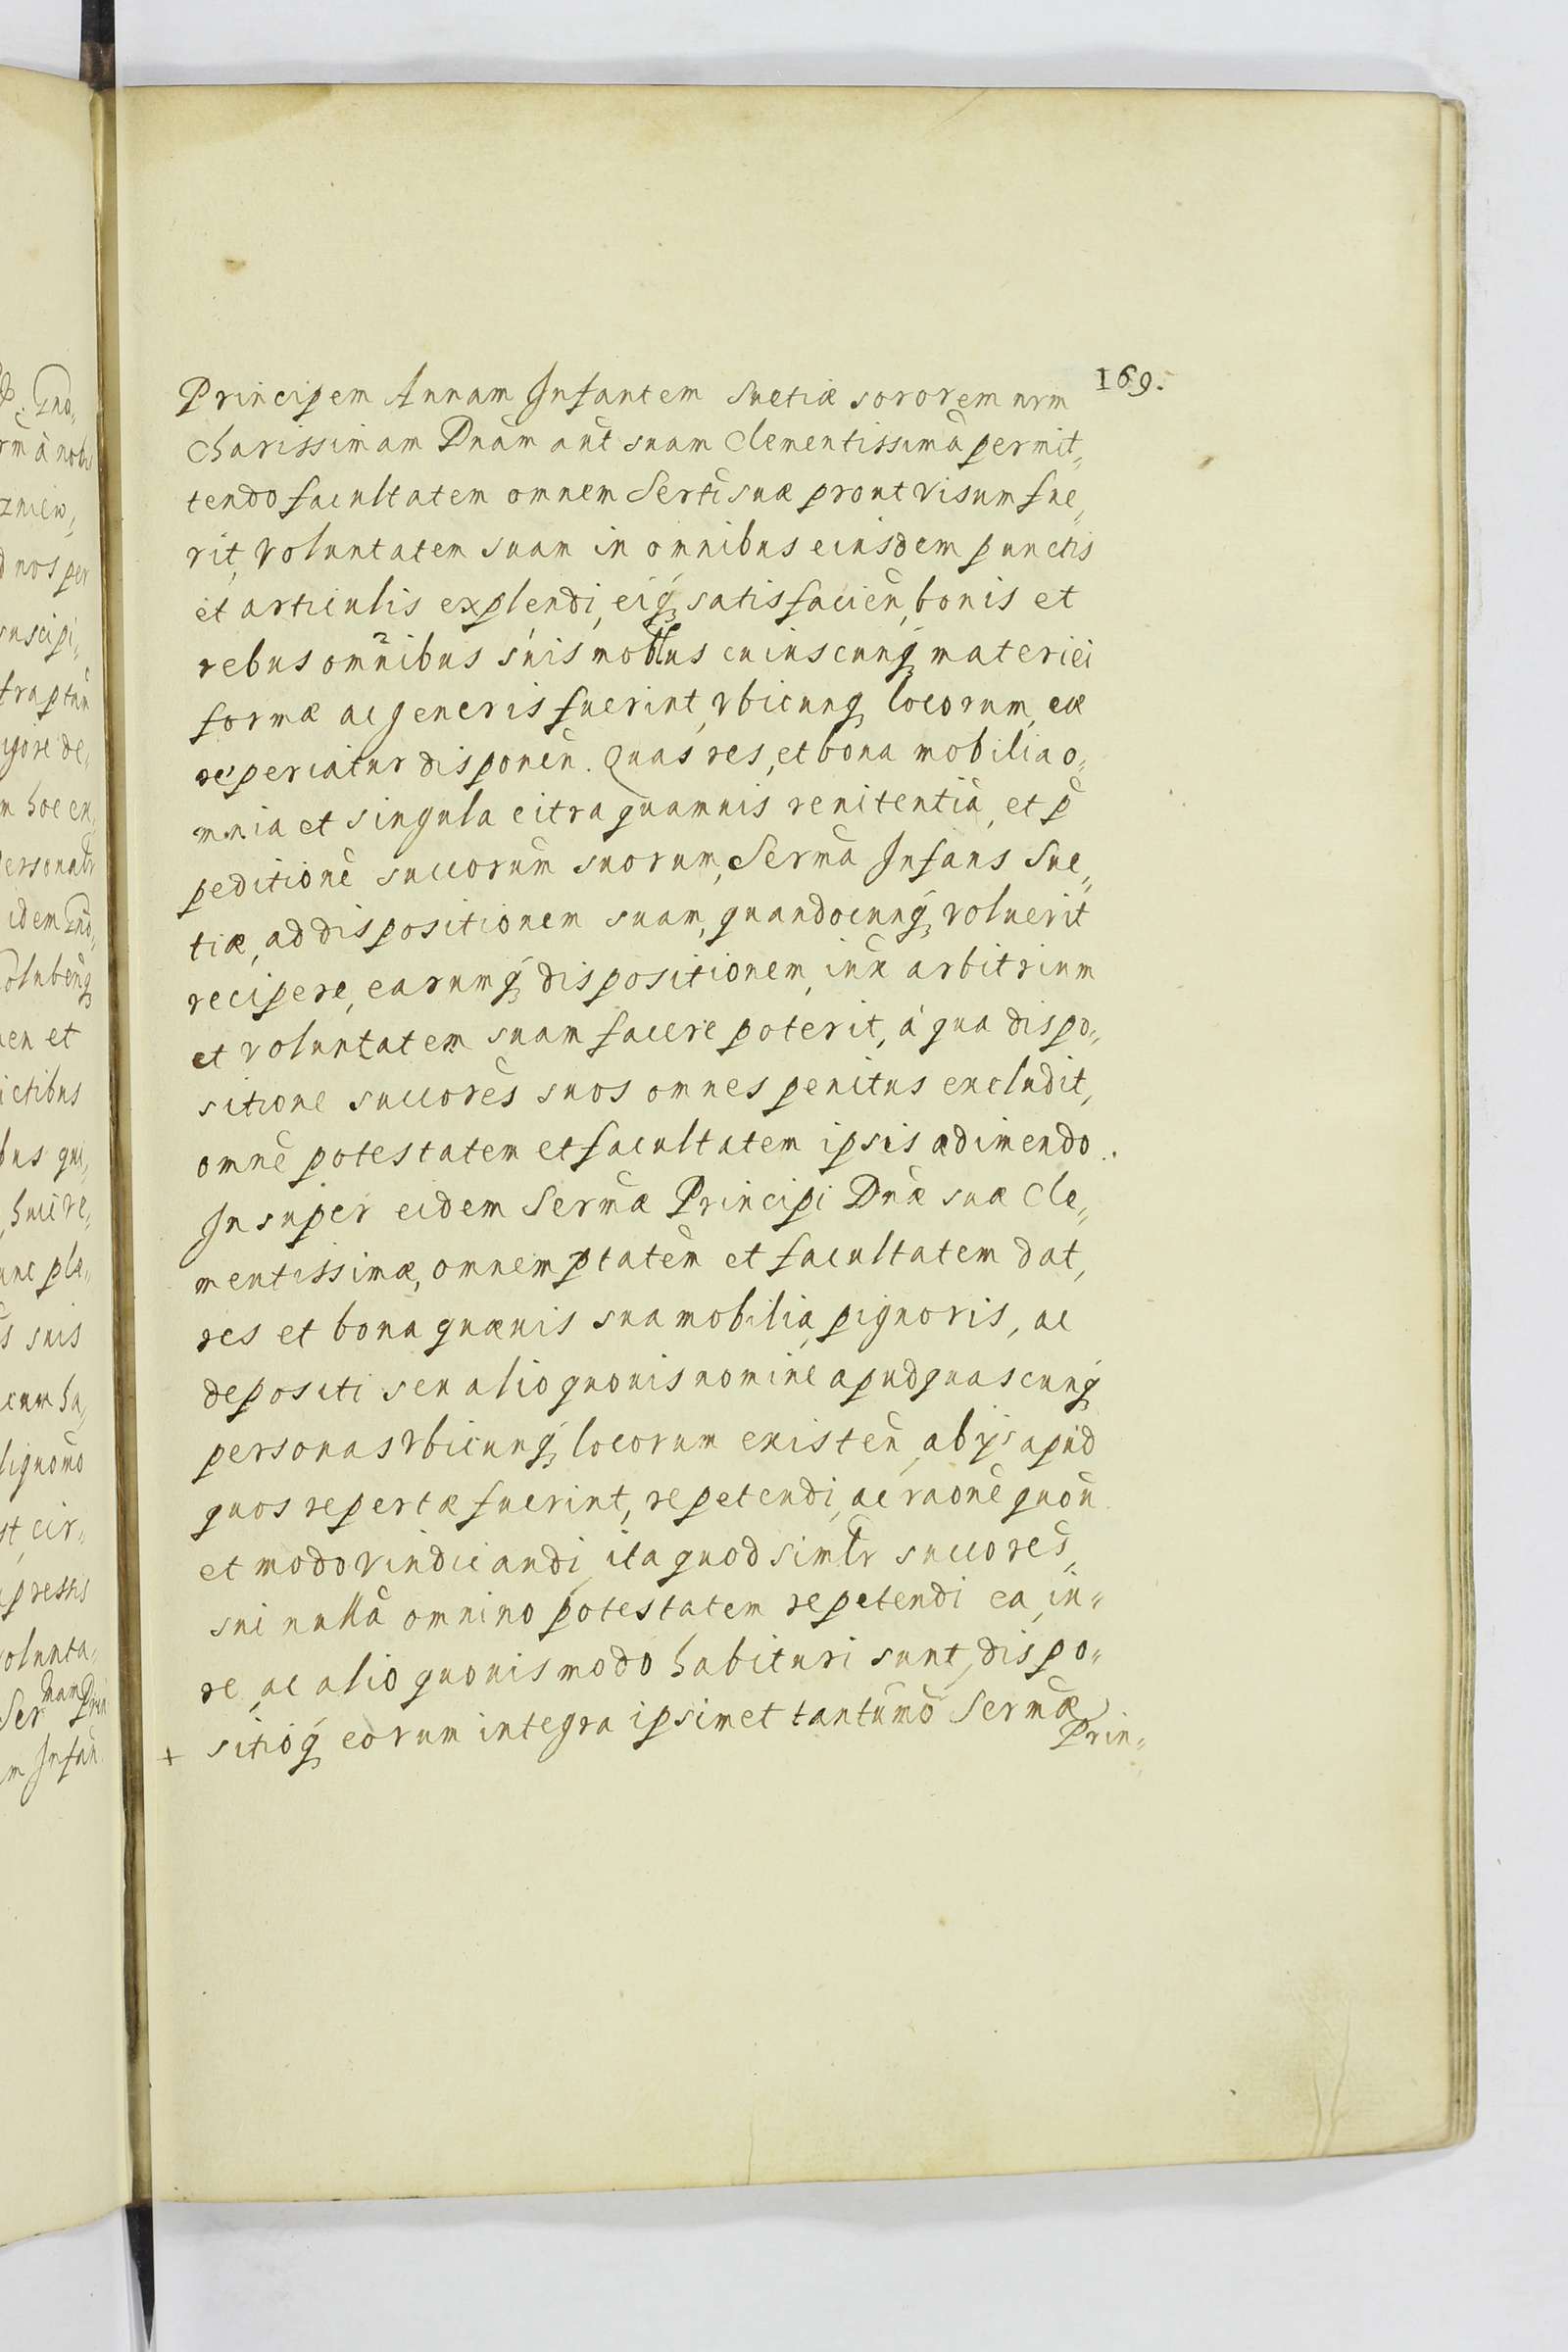 169.
Principem Annam Infantem Suetiæ sororem nrm
charissimam Dnām aūt suam Clementissimā permit„
tendo facultatem omnem Serti suæ prout visum fue„
rit, voluntatem suam in omnibus eiusdem punctis
et articulis explendi, eiq́ satisfacien̄, bonis et
rebus omnibus suis moblbus cuiuscunq́ materiei
formæ ac generis fuerint, vbicunq́ locorum, eæ
reperiatur disponen̄. Quas res, et bona mobilia o„
mnia et singula citra quamuis renitentiā, et p̄
peditionē succorūm suorum, Serma Infans Sue„
tiæ, ad dispositionem suam, quandocunq́ voluerit
recipere, earumq́ dispositionem, iux̄ arbitrium
et voluntatem suam facere poterit, à qua dispo„
sitione succorēs suos omnes penitus excludit,
omnē potestatem et facultatem ipsis adimendo.
Insuper eidem Sermæ Principi Dnæ suæ Cle„
mentissimæ, omnem ptatēm et facultatem dat,
res et bona quæuis sua mobilia, pignoris, ac
depositi seu alio quouis nomine apud quascunq́
personas vbicunq́ locorum existen̄, ab ijs apud
quos repertæ fuerint, repetendi, ac raonē quōū
et modo vindicandi, ita quod similr succorēs,
sui nullā omnino potestatem repetendi ea, iu„
re, ac alio quouis modo habituri sunt, dispo„
+ sitioq́ eorum integra ipsimet tantūmō Sermæ
Prin„